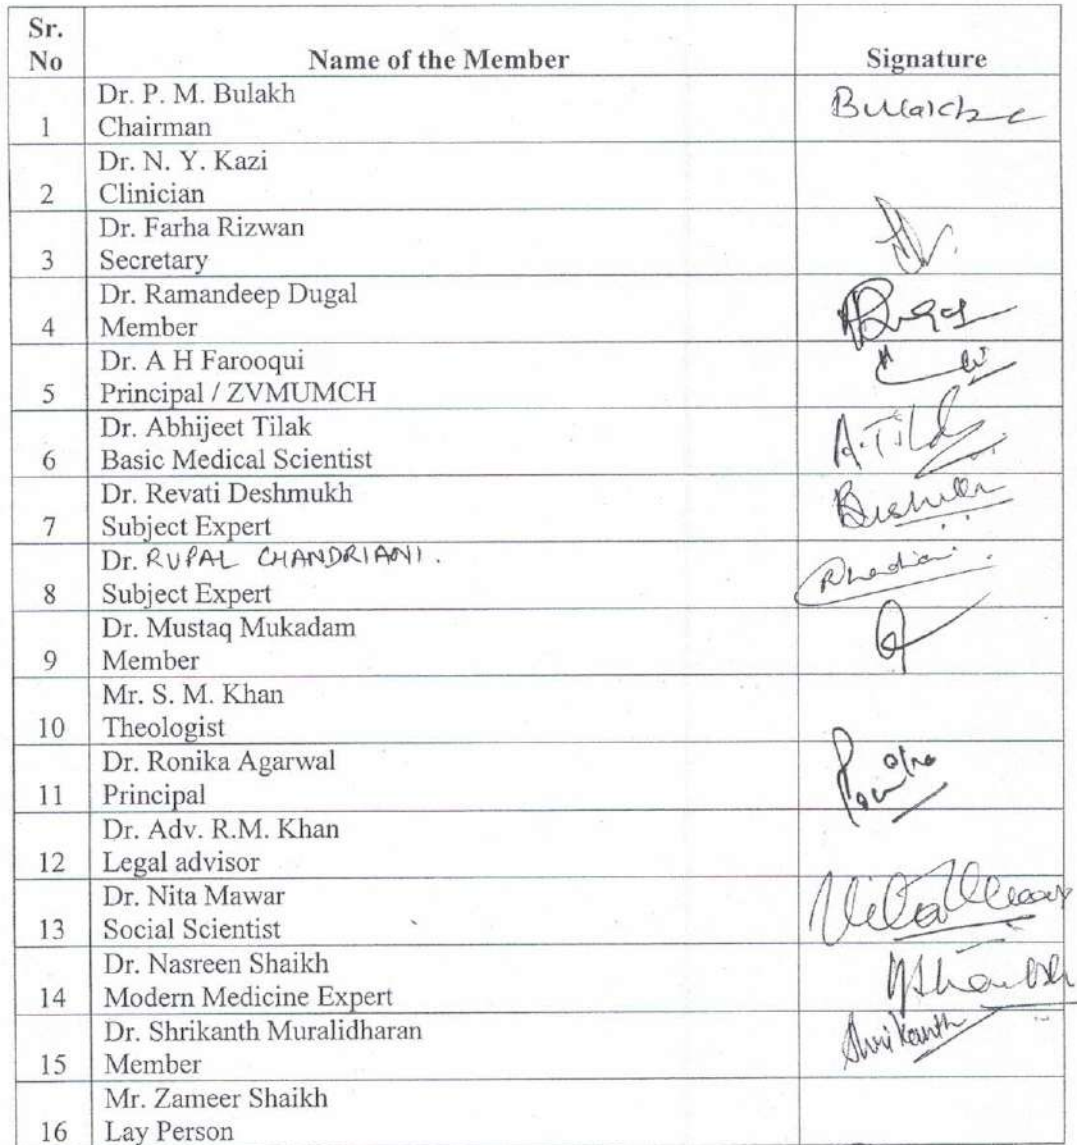 Sr.
No
Name of the Member
Signature
Dr. P. M. Bulakh
1
Chairman
Bulakh
Dr. N. Y. Kazi
2
Clinician
Dr. Farha Rizwan
3
Secretary
Dr. Ramandeep Dugal
4
Member
Dr. A H Farooqui
5
Principal / ZVMUMCH
Dr. Abhijeet Tilak
6
Basic Medical Scientist
A.Tilak
Dr. Revati Deshmukh
7
Subject Expert
Dr. RUPAL CHANDRIANI.
8
Subject Expert
Dr. Mustaq Mukadam
9
Member
Mr. S. M. Khan
10
Theologist
Dr. Ronika Agarwal
11
Principal
Dr. Adv. R.M. Khan
12
Legal advisor
Dr. Nita Mawar
13
Social Scientist
Dr. Nasreen Shaikh
14
Modern Medicine Expert
Dr. Shrikanth Muralidharan
15
Member
Shrikanth
Mr. Zameer Shaikh
16
Lay Person